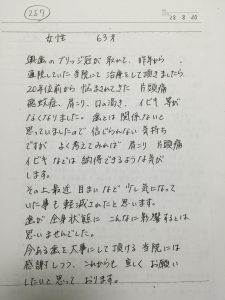 257
28.8.20
女性 63才
奥歯のブリッジ冠が取れて、昨年から
通院していた当院にて治療をして頂きましたら
20年位前から悩まされてきた片頭痛
肩こり、口の渇き、イビキ等が
なくなりました。歯とは関係ないと
思っていましたので信じられない気持ち
ですが よく考えてみれば 肩こり 片頭痛
イビキなどは納得できるような気が
します。
その上最近 目まいなど少し気になって
いた事も軽減されたと思います。
歯が全身状態に こんなに影響するとは
思いませんでした。
今ある歯を大事にして頂ける当院には
感謝しつつ、これからも宜しくお願い
したいと思って おります。